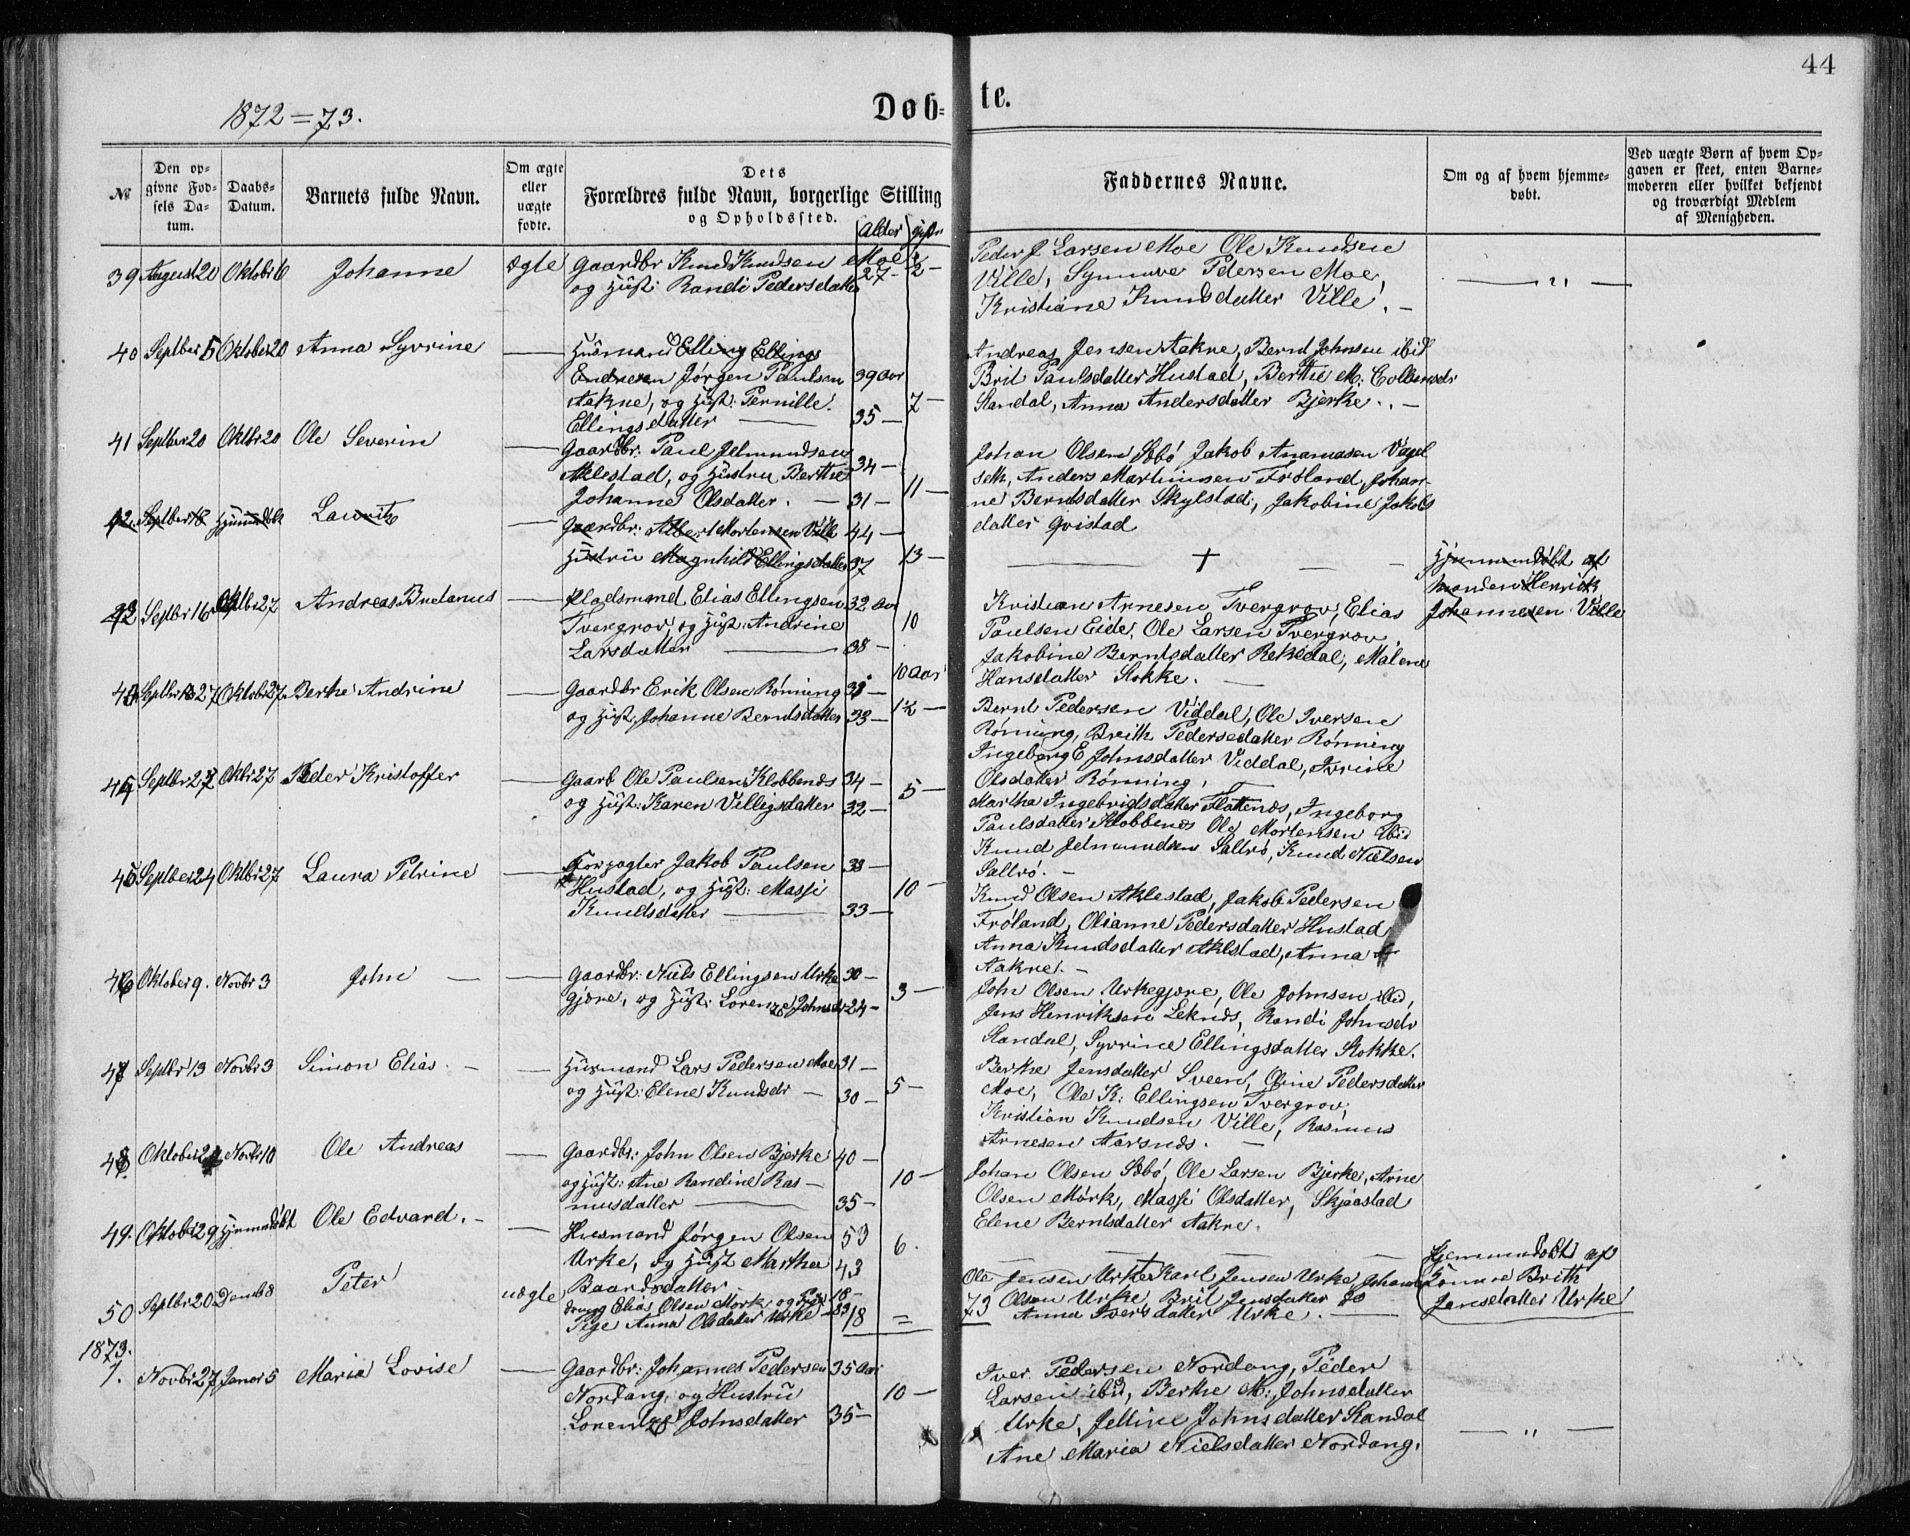 44
1872=73.
Døb-
te.
№
Den op-
givne Fød-
sels Da-
tum.
Daabs-
Datum.
Barnets fulde Navn.
Om ægte
eller
uægte
fødte.
Dets
Forældres fulde Navn, borgerlige Stilling
og Opholdssted.
Alder
gifte
Faddernes Navne.
Om og af hvem hjemme-
døbt.
Ved uægte Børn af hvem Op-
gaven er skeet, enten Barne-
moderen eller hvilket bekjendt
og troværdigt Medlem
af Menigheden.
39 August 20 Oktobr 6 Johanne ægte Gaardbr Knud Knudsen Moe
og Hust: Randi Pedersdatter 27 - ½ -
Peder J Larsen Moe Ole Knudsen
Ville, Synnøve Pedersen Moe,
Kristiane Knudsdatter Ville. -
— " —
40 Septber 5 Oktober 20 Anna Syvrine — Husmand Elling Ellings
Endresen Jørgen Paulsen 39 Aar
Aakne, og Hust: Pernille 7 -
Ellingsdatter — 35 -
Andreas Jensen Aakne, Bernt Johnsen ibid
Brit Paulsdatter Hustad, Berthe M: Colbensdr
Standal, Anna Andersdatter Bjerke. -
41 Septber 20 Oktbr 20 Ole Severin — Gaardbr: Paul Jetmundsen
Aklestad, og Hustru Berthe 34 -
Johanne Olsdatter. — 31 - 11 -
Johan Olsen Sæbø Jakob Ananiasen Vagel
seth, Anders Martinusen Frøland, Johan-
ne Berntsdatter Skylstad, Jakobine Jakobs
datter Qvistad
42. Septber 18 Hjemmedøbt Lauritz — Gaardbr: Albert Mortensen Ville 44 -
Hustru Magnhild Ellingsdatter 37 13 -
— + —
Hjemmedøbt af
Manden Henrik
Johannesen Ville
42 Septbr 16 Oktbr 27 Andreas Budanus — Pladsmand Elias Ellingsen 32 Aar
Tvergrov, og Hust: Andrine 10
Larsdatter — 38 -
Kristian Arnesen Tvergrov, Elias
Paulsen Eide, Ole Larsen Tvergrov
Jakobine Berntsdatter Rekkedal, Malene
Hansdatter Stokke. -
10 Aar
43 Septbr 27 Oktobr 27 Berthe Andrine — Gaardbr Erik Olsen Rønning 38 -
og Hust: Johanne Berntsdatter 33 - 1½ -
Bernt Pedersen Viddal, Ole Iversen
Rønning, Brith Pedersdatter Rønning
Ingeborg E Johnsdatter Viddal, Ivrine
Olsdatter Rønning. -
44 Septbr 27 Oktbr 27 Peder Kristoffer — Gaarb Ole Paulsen Klobbenes 34 -
og Hust: Karen Villigsdatter 32 - 5 -
Martha Ingebrigtsdatter Flatenes, Ingeborg
Paulsdatter Klobbenes Ole Mortensen ibid
Knud Jetmundsen Saltrø, Knud Nielsen
Saltrø. -
45 Septber 24 Oktbr 27 Laura Petrine — Forpagter Jakob Paulsen 38 -
Hustad, og Hust: Massi 10 -
Knudsdatter — 33 -
Knud Olsen Aklestad, Jakob Pedersen
Frøland, Olianne Pedersdatter Hustad
Anna Knudsdatter Aklstad, Anna
Aakne. -
46 Oktober 9. Novbr 3 John — — Gaardbr: Niels Ellingsen Urke 30 -
gjære, og Hust: Lorenze Johnsdr 24 - 3 -
John Olsen Urkegjære, Ole Johnsen ibid,
Jens Henriksen Leknes, Randi Johnsdr
Standal, Syvrine Ellingsdatter Stokke.
47 Septbr 13 Novbr 3 Simon Elias. — — Husmand Lars Pedersen Moe 31 -
og Hust: Elene Knudsdr — 30 - 5 -
Berthe Jensdatter Sveen, Oline Pedersdatter
Moe, Ole K: Ellingsen Tvergrov,
Kristian Knudsen Ville, Rasmus
Arnesen Aarsnes. -
48 Oktober 22 Novbr 10 Ole Andreas — Gaardbr: John Olsen Bjerke 40 -
og Hust: Ane Randine Ras- 10 -
musdatter — 35 -
Johan Olsen Sæbø, Ole Larsen Bjerke, Arne
Olsen Mørk, Massi Olsdatter, Skjaastad
Elene Berntsdatter Aakne.
49. Oktobr 29 Hjemmedøbt Ole Edvard. — — Husmand Jørgen Olsen 53
Urke, og Hust Martha 43 6.
Baardsdatter
— + —
Hjemmedøbt af
Konne Brith
Jensdatter Urke
50 Septbr 20 Dembr 8 Peter uægte dreng Elias Olsen Mørk og 18 -
Pige Anna Olsdatter Urke - 18 =
Ole Jensen Urke Karl Jensen Urke, Johan
73 Olsen Urke Brit Jensdatter do
Anna Iversdatter Urke. —
1873.
1. Novbr 27 Januar 5 Maria Lovise — Gaardbr: Johannes Pedersen 35 Aar
Nordang, og Hustru 10 -
Lorentze Johnsdatter 35 -
Iver Pedersen Nordang, Peder
Larsen ibid, Berthe M: Johnsdatter
Urke, Jelline Johnsdatter Standal
Ane Maria Nielsdatter Nordang.
— " —